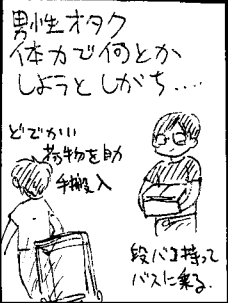 男性オタク
体力で何とか
しようとしがち....
どでかい
荷物を助
手搬入
段バコ持って
バスに乗る.